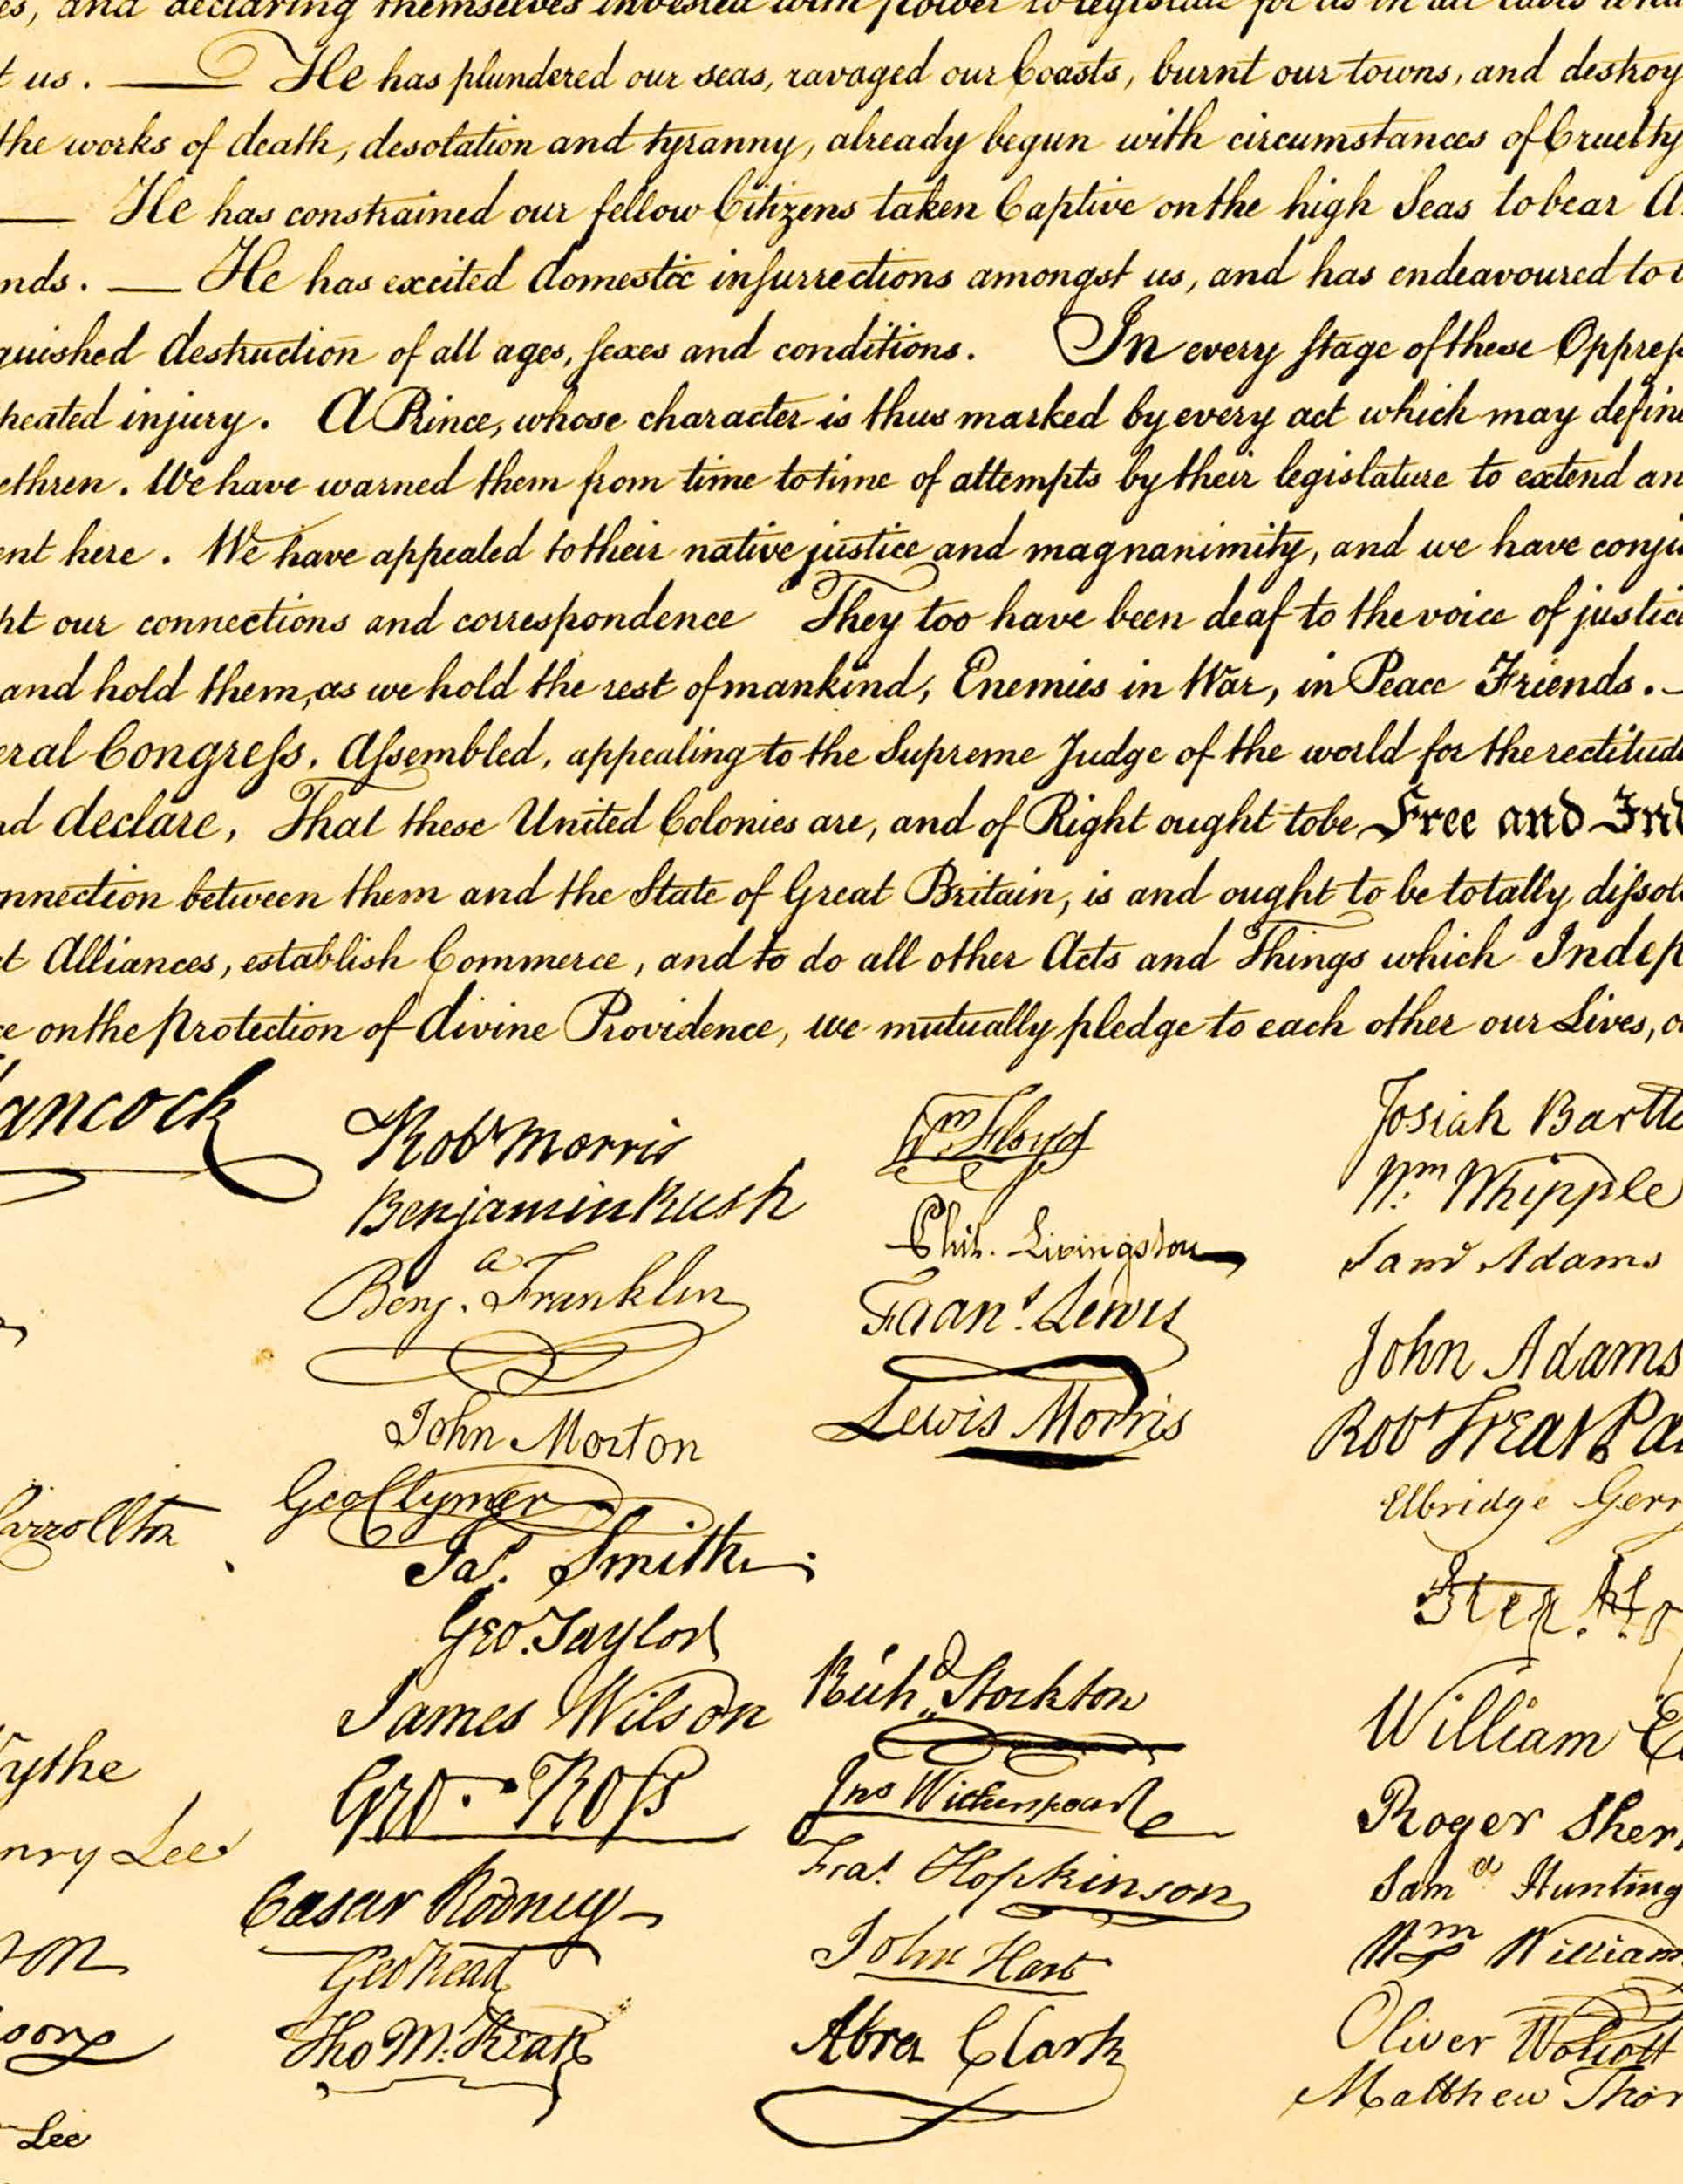 es, and declaring themselves invested with power to legislate for us in all cases
t us. — He has plundered our seas, ravaged our Coasts, burnt our towns, and destroy
the works of death, desolation and tyranny, already begun with circumstances of Cruelty
— He has constrained our fellow Citizens taken Captive on the high Seas to bear A
nds. — He has excited domestic inſurrections amongst us, and has endeavoured to
guished destruction of all ages, ſexes and conditions. In every ſtage of these Oppreſ
peated injury. A Prince, whose character is thus marked by every act which may define
ethren. We have warned them from time to time of attempts by their legislature to extend an
ent here. We have appealed to their native justice and magnanimity, and we have conju
pt our connections and correspondence They too have been deaf to the voice of justice
and hold them, as we hold the rest of mankind, Enemies in War, in Peace Friends. —
eral Congreſs, Aſsembled, appealing to the Supreme Judge of the world for the rectitude
nd declare, That these United Colonies are, and of Right ought to be Free and Ind
onnection between them and the State of Great Britain, is and ought to be totally diſsol
ct Alliances, establish Commerce, and to do all other Acts and Things which Indep
ce on the protection of divine Providence, we mutually pledge to each other our Lives, o
ancock
Carrollton
ythe
nry Lee
son
Lee
Robt Morris
Benjamin Rush
Benj.a Franklin
John Morton
Geo Clymer
Jas. Smith
Geo. Taylor
James Wilson
Geo. Roſs
Caesar Rodney
Geo Read
Tho M:Kean
Wm Floyd
Phil. Livingston
Frans. Lewis
Lewis Morris
Richd. Stockton
Jno Witherspoon
Fras. Hopkinson
John Hart
Abra Clark
Josiah Bartle
Wm Whipple
Saml Adams
John Adams
Robt Treat Pa
Elbridge Gerr
Step. Ho
William E
Roger Sher
Saml Hunting
Wm Williams
Oliver Wolcott
Matthew Thor